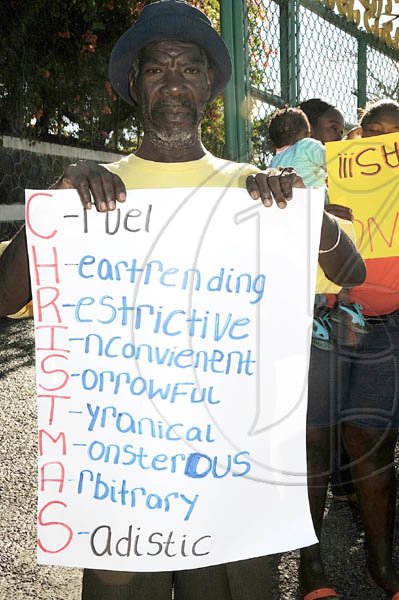 C-ruel
H-eartrending
R-estrictive
I-nconvienent
S-orrowful
T-yranical
M-onsterOUS
A-rbitrary
S-adistic